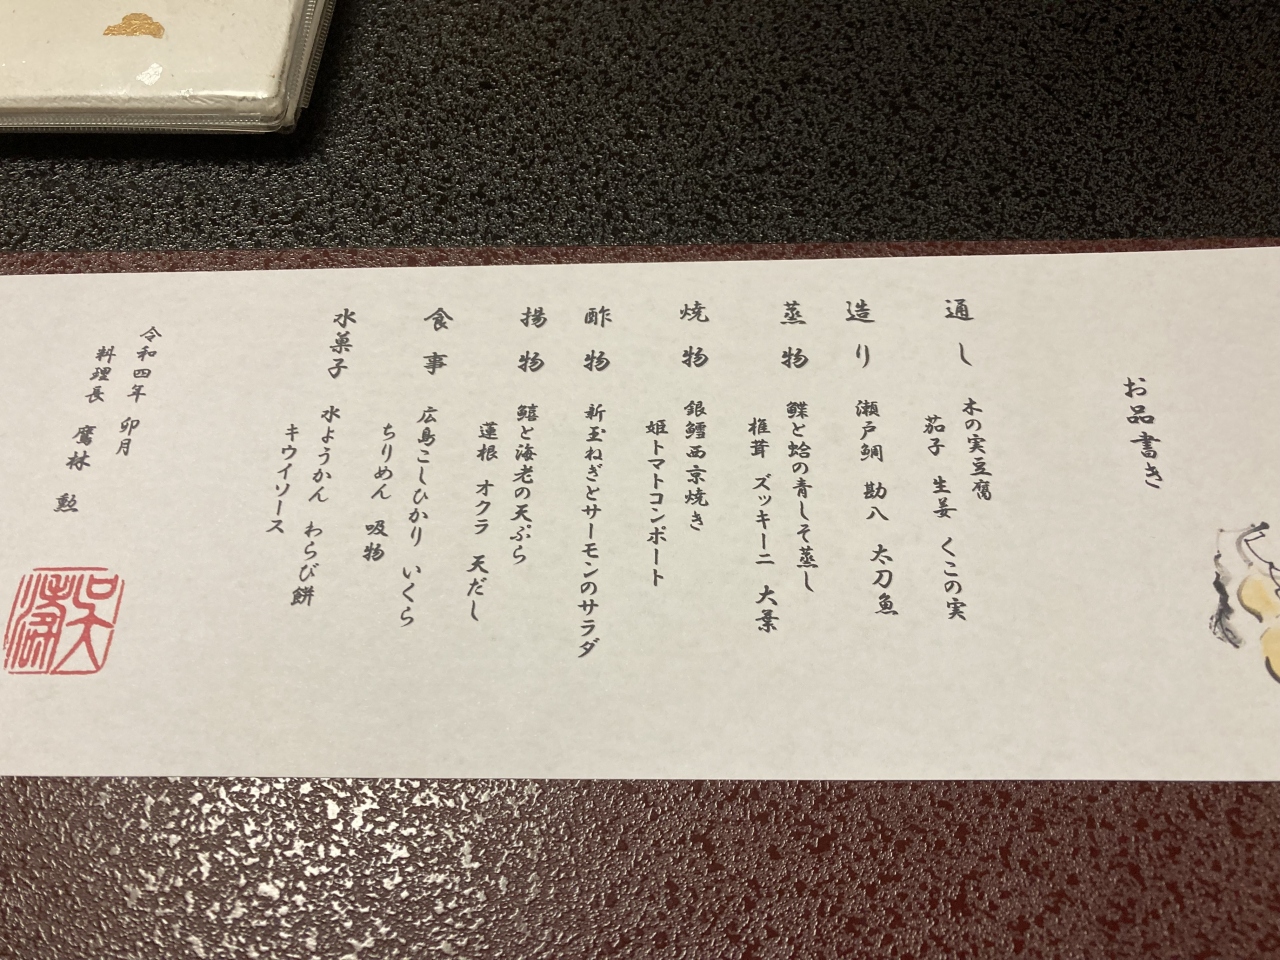 お品書き
通し
木の実豆腐
茄子 生姜 くこの実
造り
瀬戸鯛 勘八 太刀魚
蒸物
鰈と蛤の青しそ蒸し
椎茸 ズッキーニ 大葉
焼物
銀鱈西京焼き
姫トマトコンポート
酢物
新玉ねぎとサーモンのサラダ
揚物
鱚と海老の天ぷら
蓮根 オクラ 天だし
食事
広島こしひかり いくら
ちりめん 吸物
水菓子
水ようかん わらび餅
キウイソース
令和四年 卯月
料理長 鷹林 勲